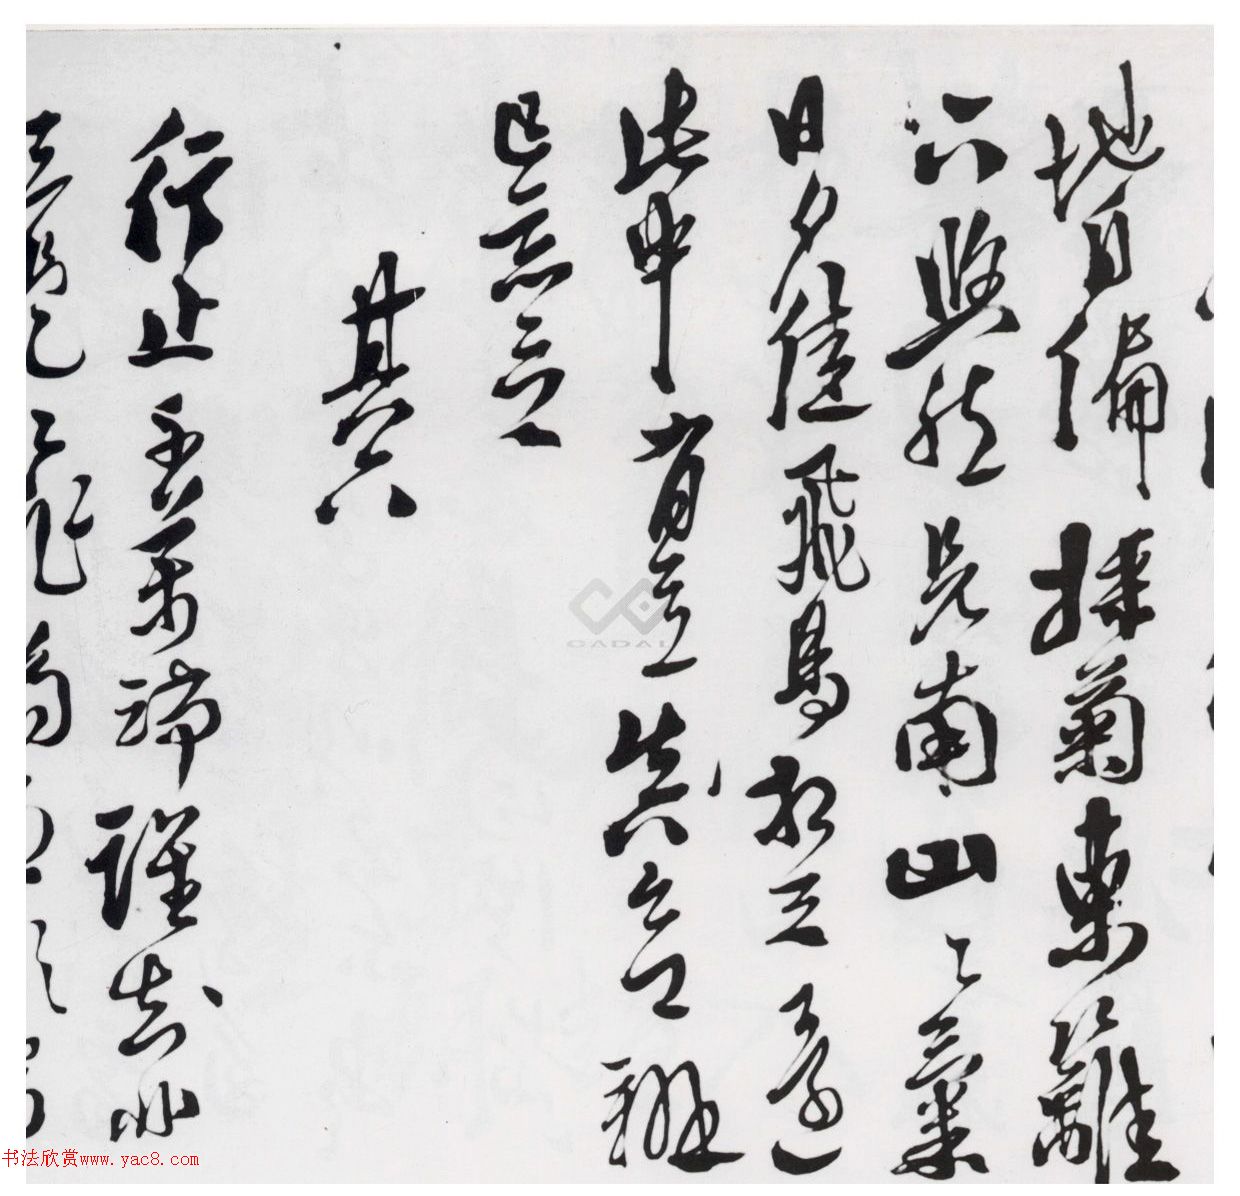 地自偏採菊東籬
下悠然見南山〻氣
日夕佳飛鳥相与還
此中有真意欲辨
已忘言
其六
行止千萬端誰知非
CADAL
书法欣赏www.yac8.com